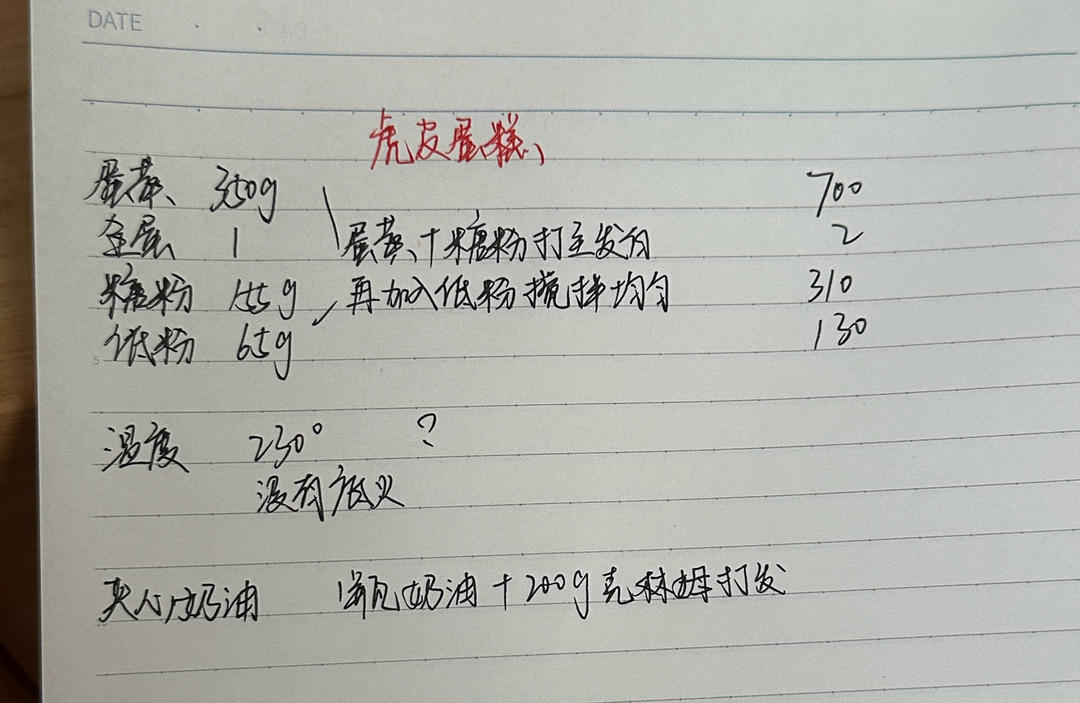 DATE
虎皮蛋糕
蛋黄 350g 700
全蛋 1 蛋黄+糖粉打至发白 2
糖粉 155g 再加入低粉搅拌均匀 310
低粉 65g 130
温度 230° ?
没有底火
夹心奶油 1瓶奶油+200g克林姆打发